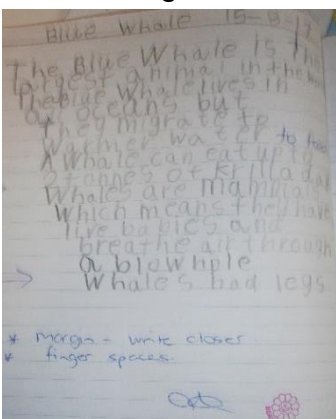 Blue Whale 15-8-17
The Blue Whale is the
largest animal in the
The Blue Whale lives in
our oceans but
They migrate to
Warmer water to feed
A Whale can eat up to
5 tonnes of krill a day
Whales are mammals
Which means they have
live babies and
breathe air through
a blowhole
Whales had legs
* margin - write closer
* finger spaces.